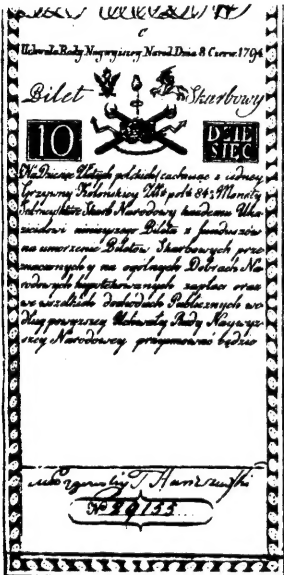 C
Uchwała Rady Naywyższey Narod. Dnia 8. Czerw. 1794
Bilet Skarbowy
10 DZIE
SIĘĆ
Na Dziesięć Złotych polskich rachuiąc z iedney
Grzywny Kolońskiey Złt: polt 84½ Monety
Srebrney które Skarb Narodowy każdemu Oka-
zicielowi ninieyszego Biletu z funduszów
na umorzenie Biletów Skarbowych prze-
znaczonych y na ogólnych Dobrach Na-
rodowych hypotekowanych zapłaci oraz
we wszelkich dochodach Publicznych we-
dług powyższey Uchwały Rady Naywyż-
szey Narodowey przyimować będzie
No 29153